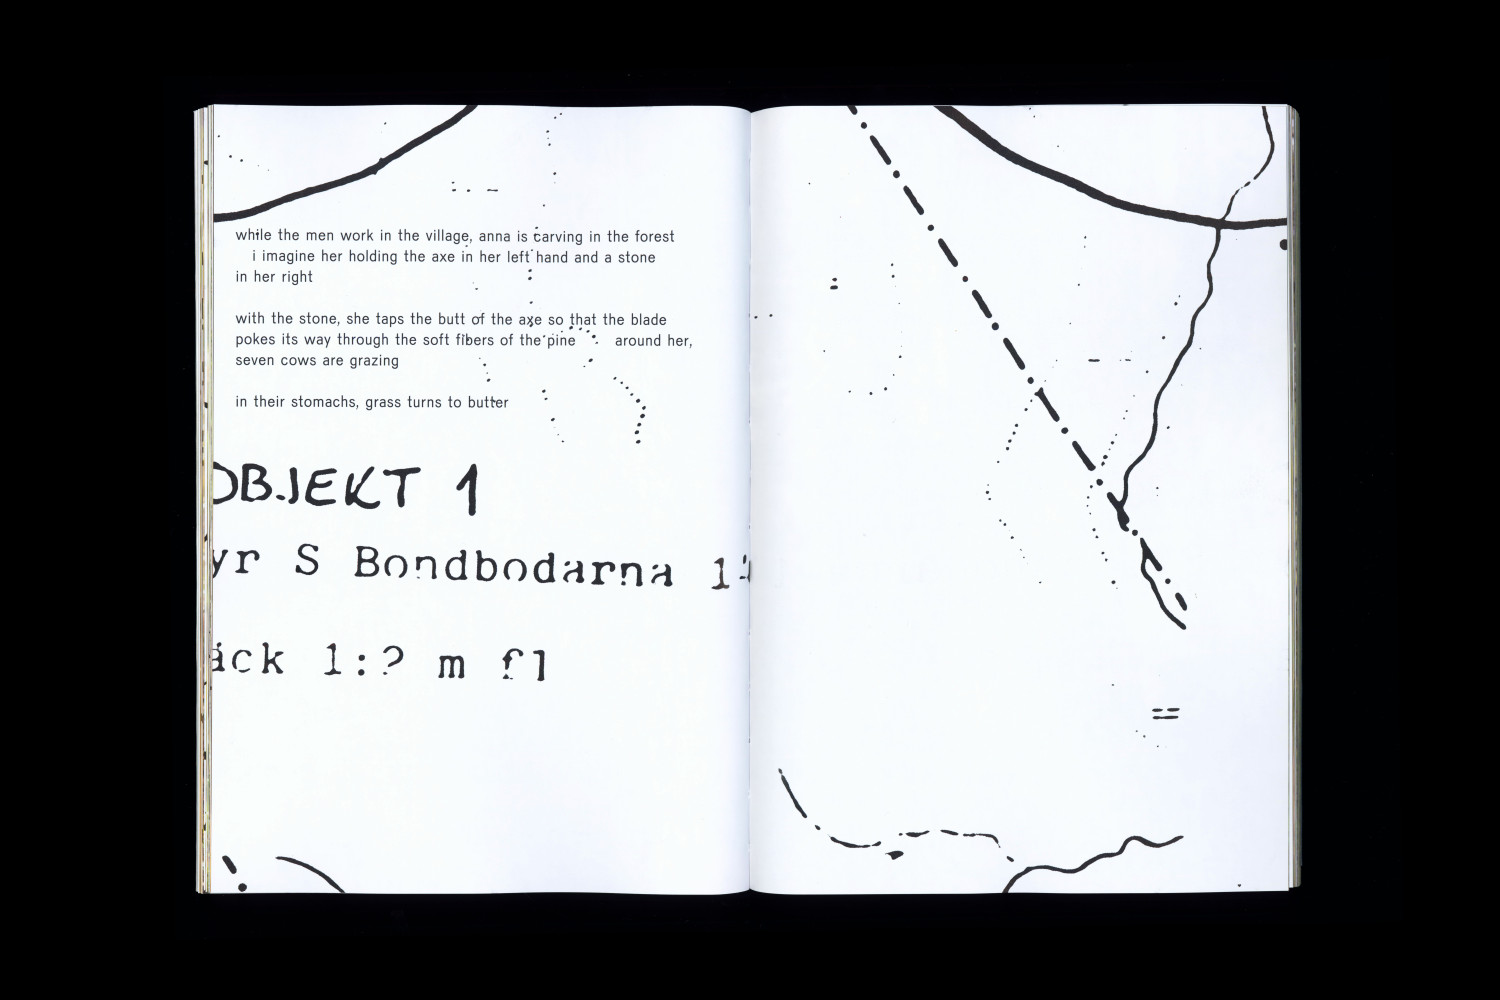 while the men work in the village, anna is carving in the forest
i imagine her holding the axe in her left hand and a stone
in her right
with the stone, she taps the butt of the axe so that the blade
pokes its way through the soft fibers of the pine around her,
seven cows are grazing
in their stomachs, grass turns to butter
OBJEKT 1
yr S Bondbodarna 1:
äck 1:? m fl